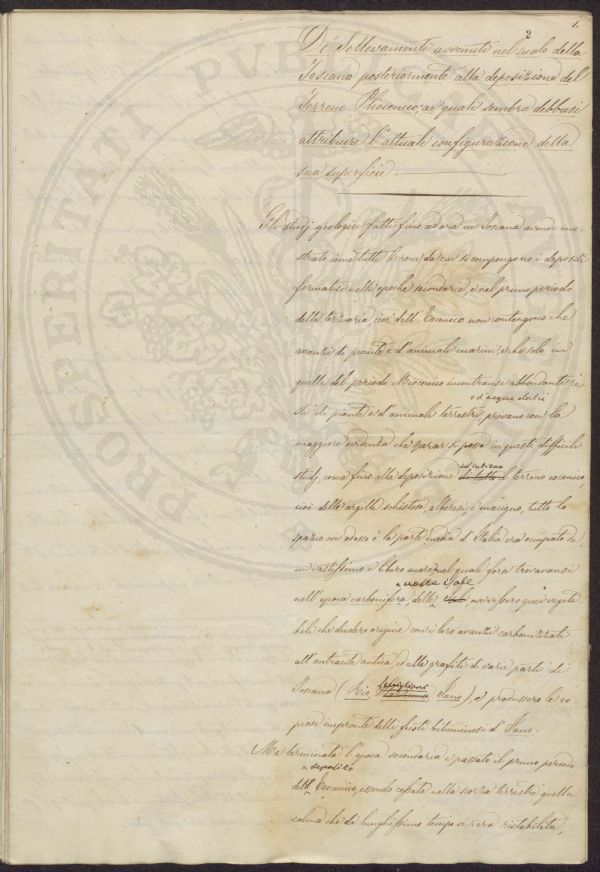 1.
2
Di Sollevamenti avvenuti nel suolo della
Toscana posteriormente alla deposizione del
Terreno Pliocenico, ai quali sembra debbasi
attribuire l'attuale configurazione della
sua superficie
Gli studj geologici fatti fino ad ora in Toscana avendo mo-
strato come tutte le rocce da cui si compongono i depositi
formatisi nelle epoche secondarie, e nel primo periodo
della terziaria cioè dell'Eocenico non contengono che
avanzi di piante e d'animali marini e che solo in
quelli del periodo Miocenico incontransi abbondanti re-
e d'acqua dolci
sti di piante e d'animali terrestri provano con la
maggiore evidenza che sperar si possa in questi difficili
studj, come fino alla deposizione di tutto il terreno eocenico,
cioè delle argille schistose, alberesi, e macigno, tutto lo
spazio ove adesso è la parte media d'Italia era occupato da
un vastissimo e libero mare nel quale forse trovavansi
vaste isole
nell'epoca carbonifera, delle ove vissero quei vegeta-
bili che diedero origine con i loro avanzi carbonizzati
all'antracite antica, ed alle grafiti di varie parti di
Toscana (Rio, Jano), e produssero le co-
piose impronte delli scisti bituminosi d'Jano.
Ma terminata l'epoca secondaria e passato il primo periodo
deposito
dell'Eocenico, essendo cessata nella scorza terrestre quella
calma che da lunghissimo tempo vi si era ristabilita,
PROSPERITATI PUBLICAE